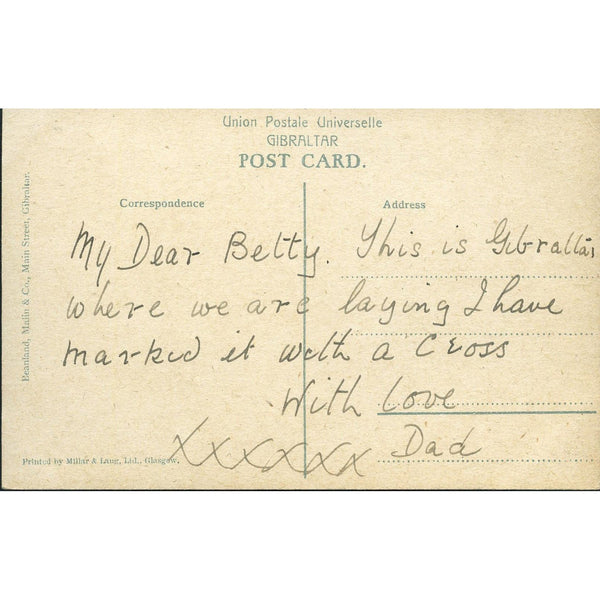 Union Postale Universelle
GIBRALTAR
POST CARD.
Correspondence
Address
My Dear Betty. This is Gibraltar
where we are laying I have
marked it with a Cross
With Love
Dad
xxxxxx
Beanland, Malin & Co., Main Street, Gibraltar.
Printed by Millar & Lang, Ltd., Glasgow.